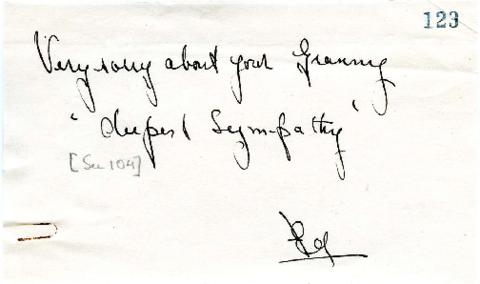 123
Very sorry about your Granny
"deepest Sympathy"
[See 104]